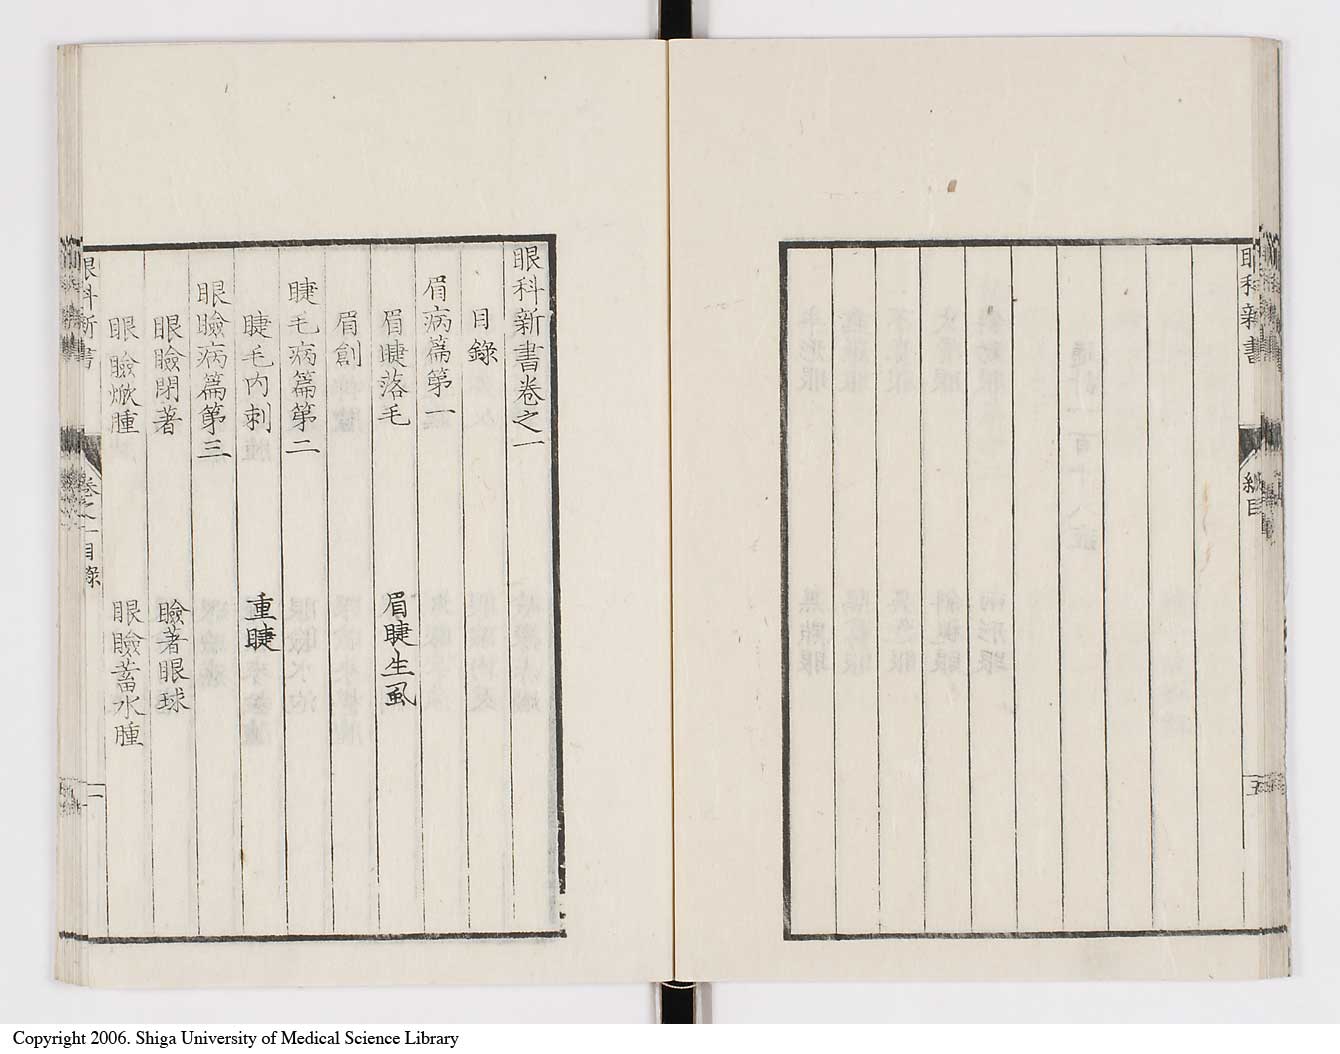 眼科新書
総目
五
眼科新書卷之一
目錄
眉病篇第一
眉睫落毛 眉睫生虱
眉創
睫毛病篇第二
睫毛內刺 重睫
眼瞼病篇第三
眼瞼閉著 瞼著眼球
眼瞼焮腫 眼瞼蓄水腫
眼科新書
卷之一目錄
一
Copyright 2006. Shiga University of Medical Science Library